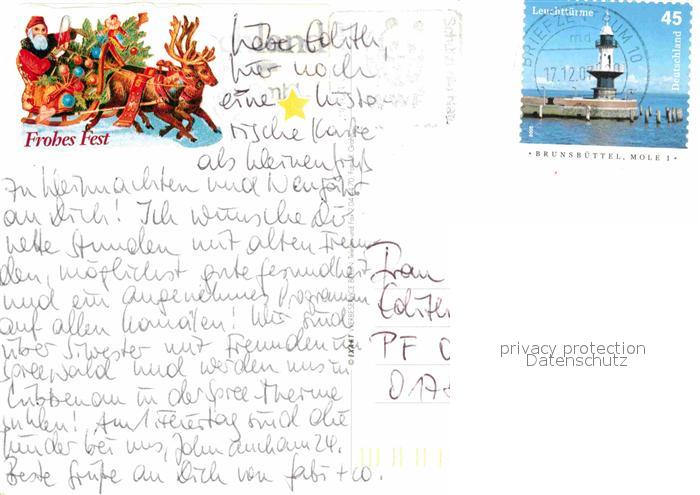 Frohes Fest
Liebe Edith,
hier noch
eine histo-
rische Karte
als kleinen Gruß
zu Weihnachten und Neujahr
an Dich! Ich wünsche Dir
nette Stunden mit alten Freun-
den, möglichst gute Gesundheit
und ein angenehmes Programm
auf allen Kanälen! Wir sind
über Silvester mit Freunden im
Spreewald und werden uns in
Lübbenau in der Spree-Therme
Am 1. Feiertag sind die
Kinder bei uns, John auch am 24.
Beste Grüße an Dich von Gabi + Co.
Leuchttürme
45
Deutschland
BRIEFZENTRUM 10
17.12.0
BRUNSBÜTTEL, MOLE 1
Frau
Edith
PF
017
privacy protection
Datenschutz